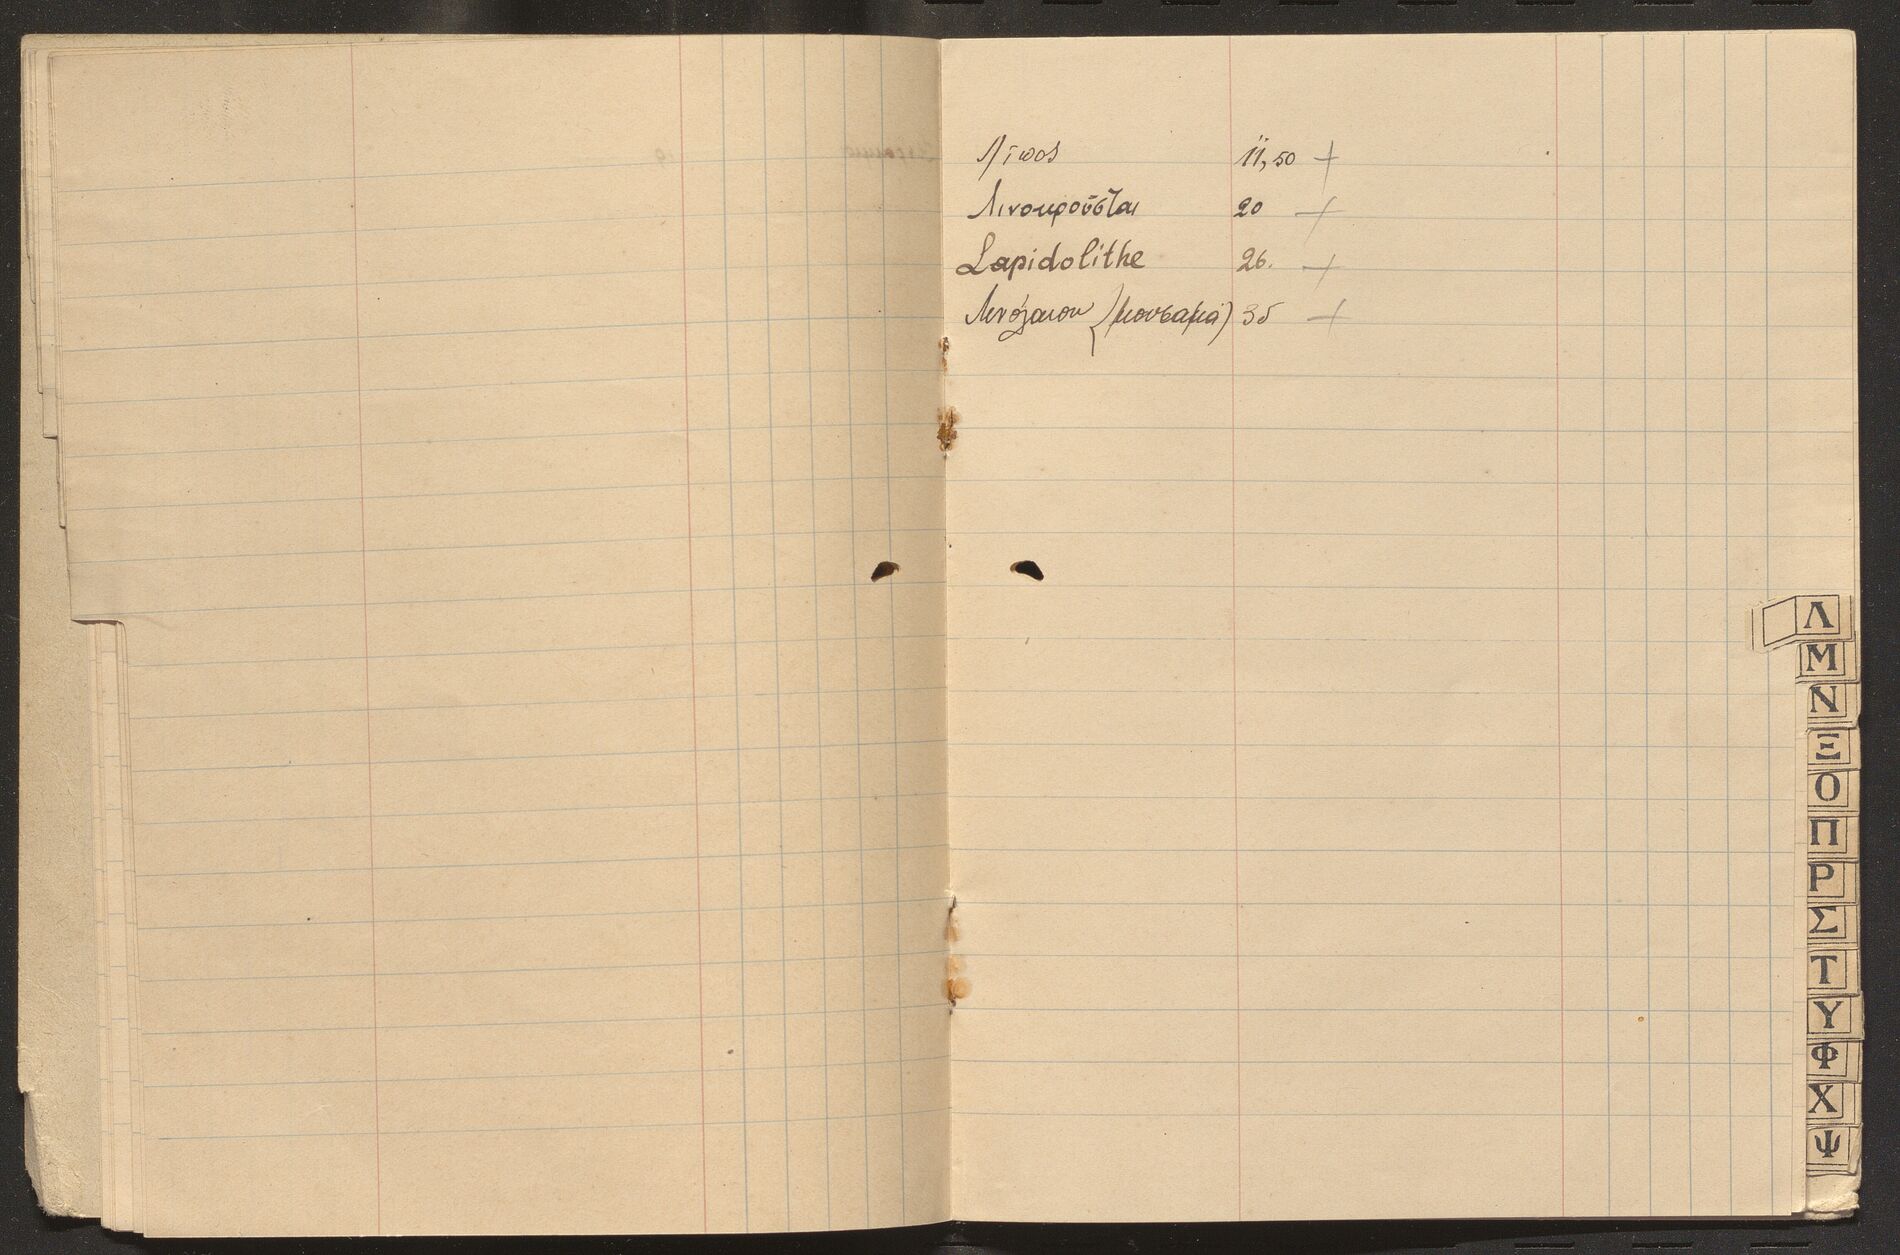 Λίπος 11,50 +
Λινοκρούσται 20 +
Lapidolithe 26. +
Λινόλαιον (μουσαμά) 35 +
Λ
Μ
Ν
Ξ
Ο
Π
Ρ
Σ
Τ
Υ
Φ
Χ
Ψ